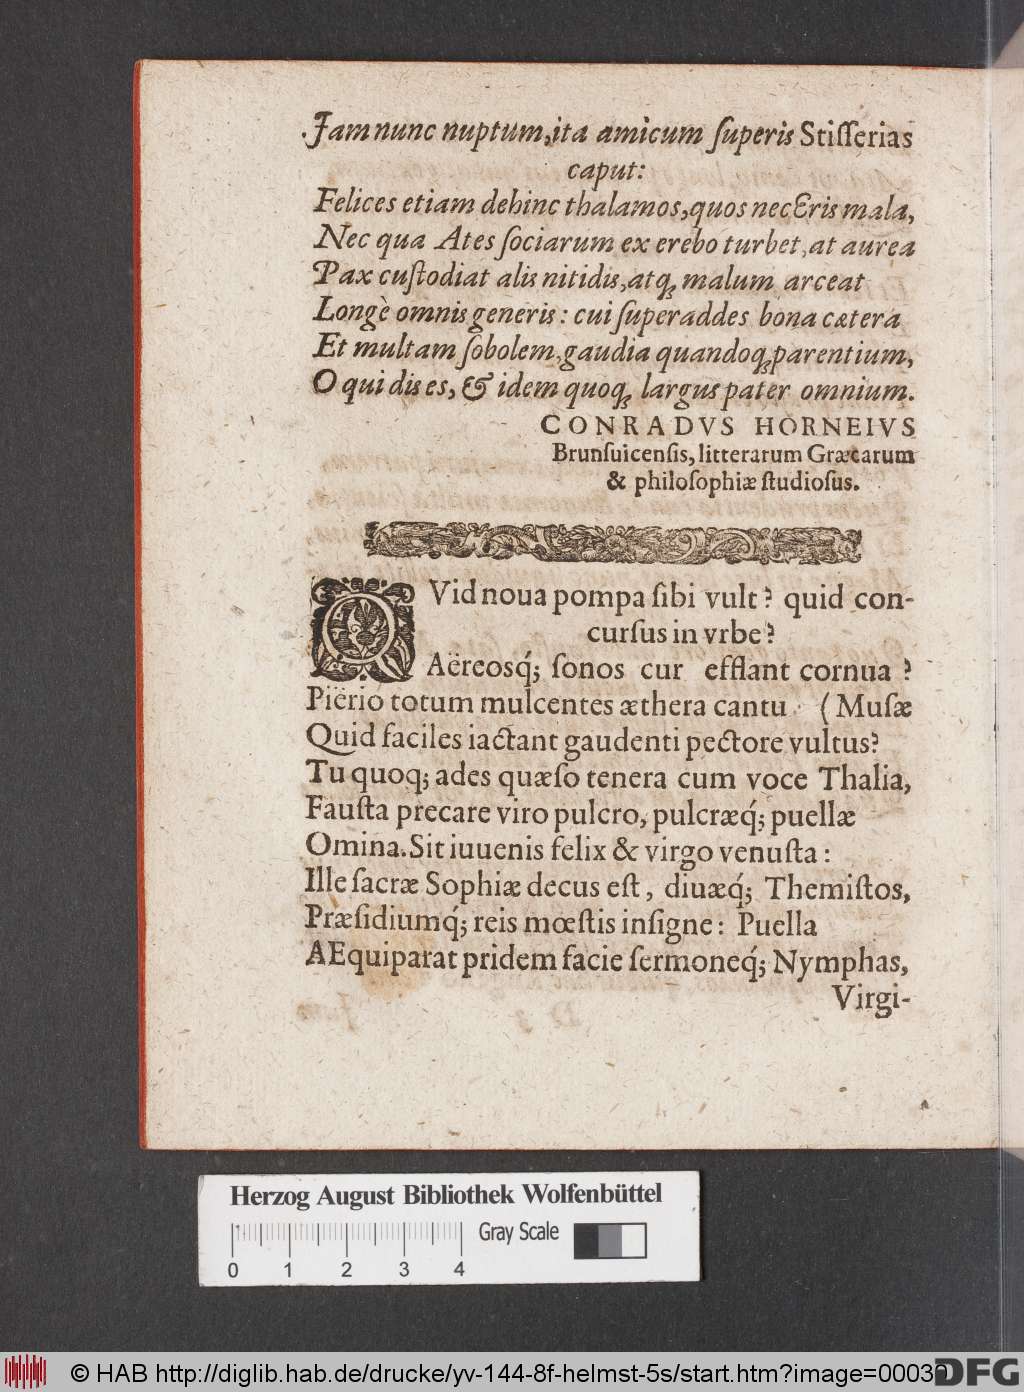 Jam nunc nuptum, ita amicum ſuperis Stiſſerias
caput:
Felices etiam dehinc thalamos, quos nec Eris mala,
Nec qua Ates ſociarum ex erebo turbet, at aurea
Pax cuſtodiat alis nitidis, atq́ꝫ malum arceat
Longè omnis generis: cui ſuperaddes bona cætera
Et multam ſobolem, gaudia quandoqꝫ parentium,
O qui dis es, & idem quoqꝫ largus pater omnium.
CONRADVS HORNEIVS
Brunſuicenſis, litterarum Græcarum
& philoſophiæ ſtudioſus.
QVid noua pompa ſibi vult? quid con-
curſus in vrbe?
Aëreosq́; ſonos cur efflant cornua?
Piërio totum mulcentes æthera cantu (Muſæ
Quid faciles iactant gaudenti pectore vultus?
Tu quoq; ades quæſo tenera cum voce Thalia,
Fauſta precare viro pulcro, pulcræq́; puellæ
Omina. Sit iuuenis felix & virgo venuſta:
Ille ſacræ Sophiæ decus eſt, diuæq́; Themiſtos,
Præſidiumq́; reis mœſtis inſigne: Puella
AEquiparat pridem facie ſermoneq́; Nymphas,
Virgi-
Herzog August Bibliothek Wolfenbüttel
Gray Scale
0 1 2 3 4
© HAB http://diglib.hab.de/drucke/yv-144-8f-helmst-5s/start.htm?image=00030
DFG